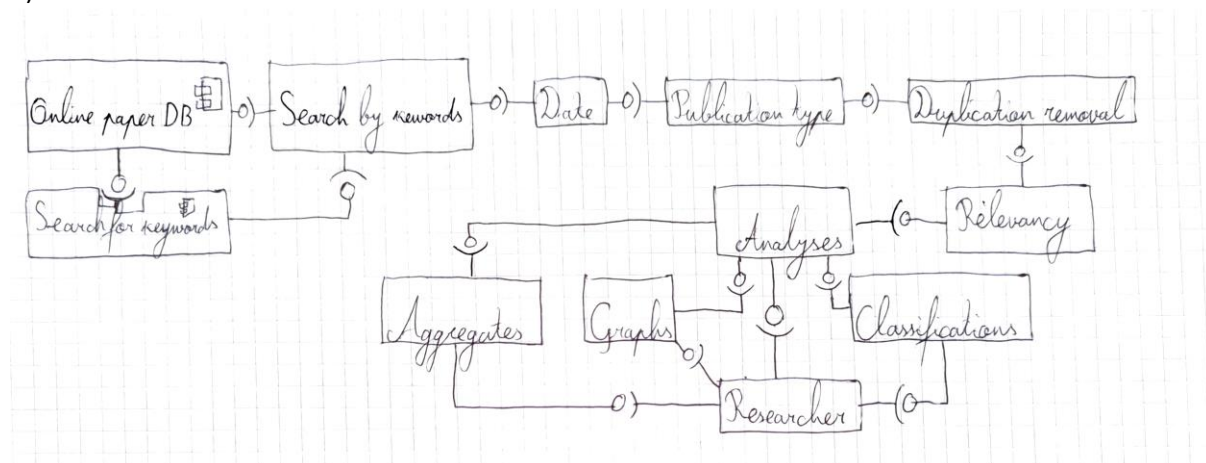 Online paper DB
Search by kewords
Date
Publication type
Duplication removal
Search for keywords
Analyses
Relevancy
Aggregates
Graphs
Classifications
Researcher